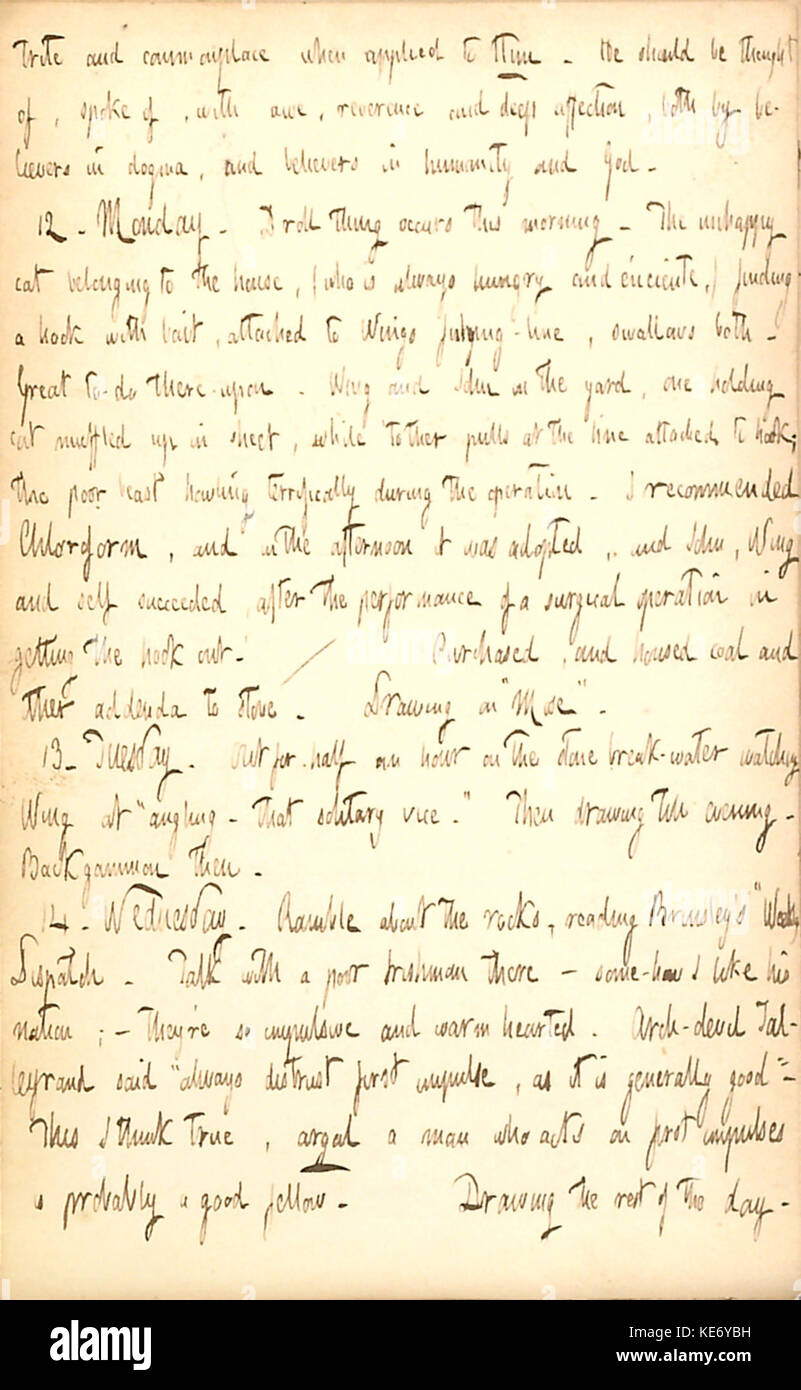 trite and commonplace when applied to Him - He should be thought
of, spoke of, with awe, reverence and deep affection, both by be-
lievers in dogma, and believers in humanity and God -
12 - Monday - Droll thing occurs this morning - The unhappy
cat belonging to the house, (who is always hungry and enciente,) finding
a hook with bait, attached to Wings fishing-line, swallows both -
Great to-do there-upon - Wing and John in the yard, one holding
cat muffled up in sheet, while t'other pulls at the line attached to hook;
the poor beast howling terrifically during the operation - I recommended
Chloroform, and in the afternoon it was adopted, and John, Wing
and self succeeded, after the performance of a surgical operation in
getting the hook out - / Purchased, and housed coal and
other addenda to stove - Drawing on "
13 - Tuesday - Out for half an hour on the stone break-water watching
Wing at "angling - that solitary vice -" Then drawing till evening -
Backgammon then -
14 - Wednesday - Ramble about the rocks, reading Brinsley's "Weekly
Dispatch - Talk with a poor Irishman there - some-how I like his
nation ; - they're so impulsive and warm hearted. Arch-devil Tal-
leyrand said "always distrust first impulse, as it is generally good" -
This I think true, argal a man who acts on first impulses
is probably a good fellow - Drawing the rest of the day -
alamy
alamy stock photo
KE6YBH
www.alamy.com